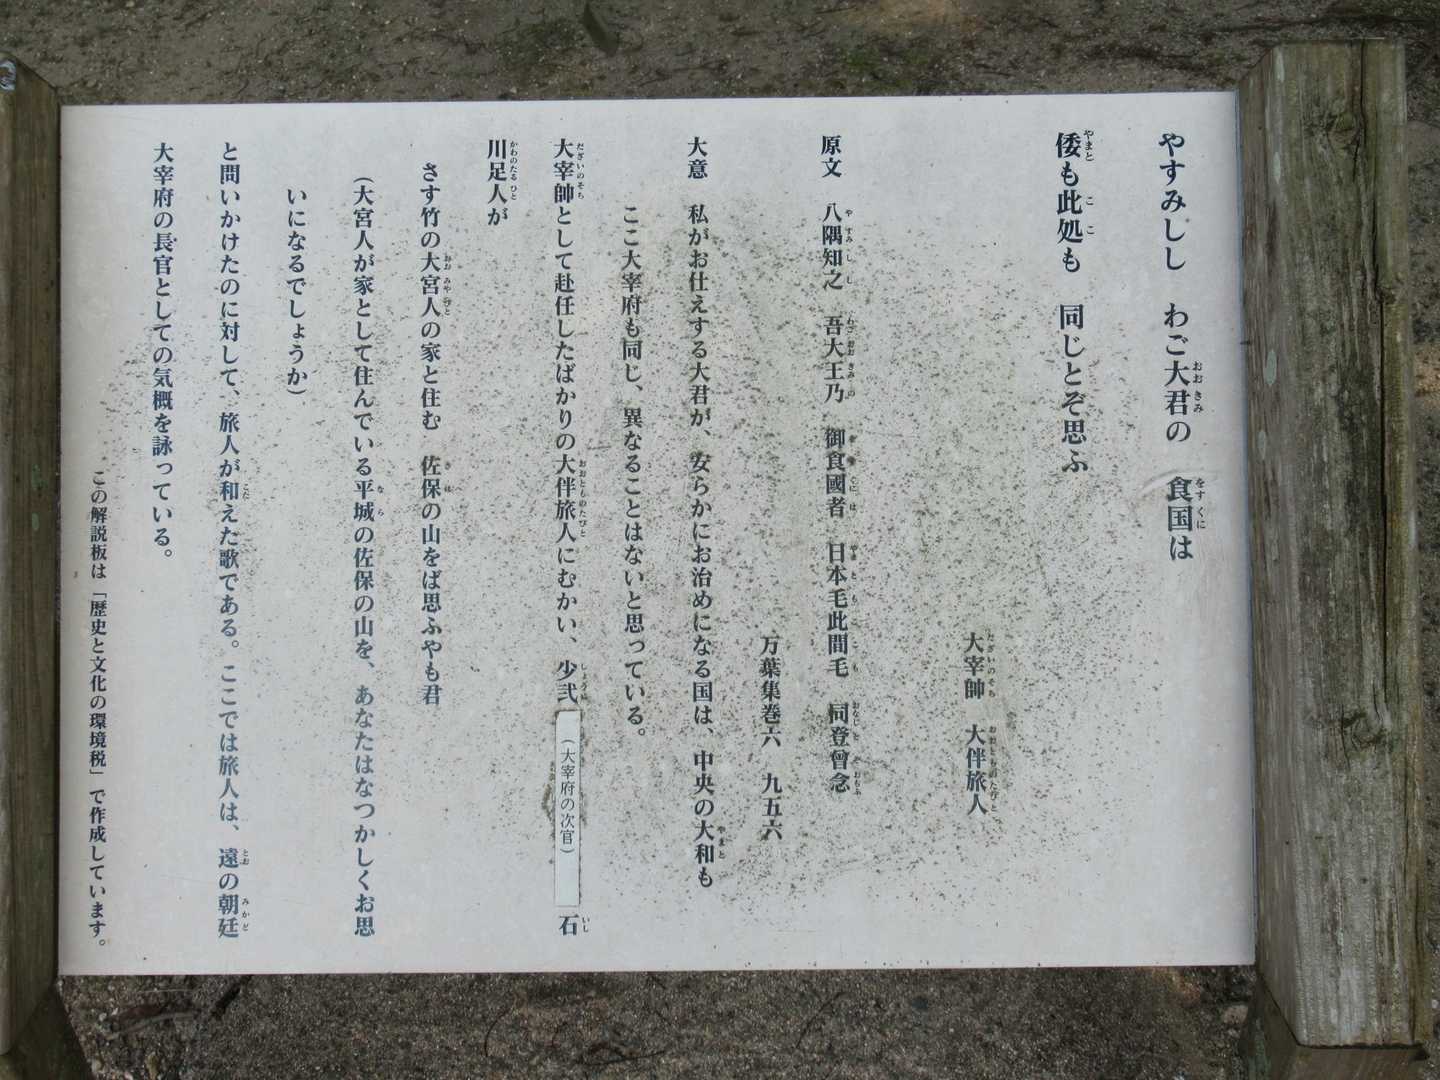 やすみしし　わご大君の　食国は
倭も此処も　同じとぞ思ふ
大宰帥　大伴旅人
原文　八隅知之　吾大王乃　御食國者　日本毛此間毛　同登曾念
万葉集巻六　九五六
大意　私がお仕えする大君が、安らかにお治めになる国は、中央の大和も
ここ大宰府も同じ、異なることはないと思っている。
大宰帥として赴任したばかりの大伴旅人にむかい、少弐（大宰府の次官）石
川足人が
さす竹の大宮人の家と住む　佐保の山をば思ふやも君
（大宮人が家として住んでいる平城の佐保の山を、あなたはなつかしくお思
いになるでしょうか）
と問いかけたのに対して、旅人が和えた歌である。ここでは旅人は、遠の朝廷
大宰府の長官としての気概を詠っている。
この解説板は「歴史と文化の環境税」で作成しています。